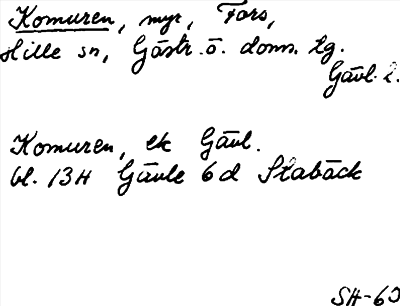 Komuren, myr, Fors,
Hille sn, Gästr. ö. doms. tg.
Gävl. l.
Komuren, ek Gävl.
bl. 13H Gävle 6d Stabäck
SH-63